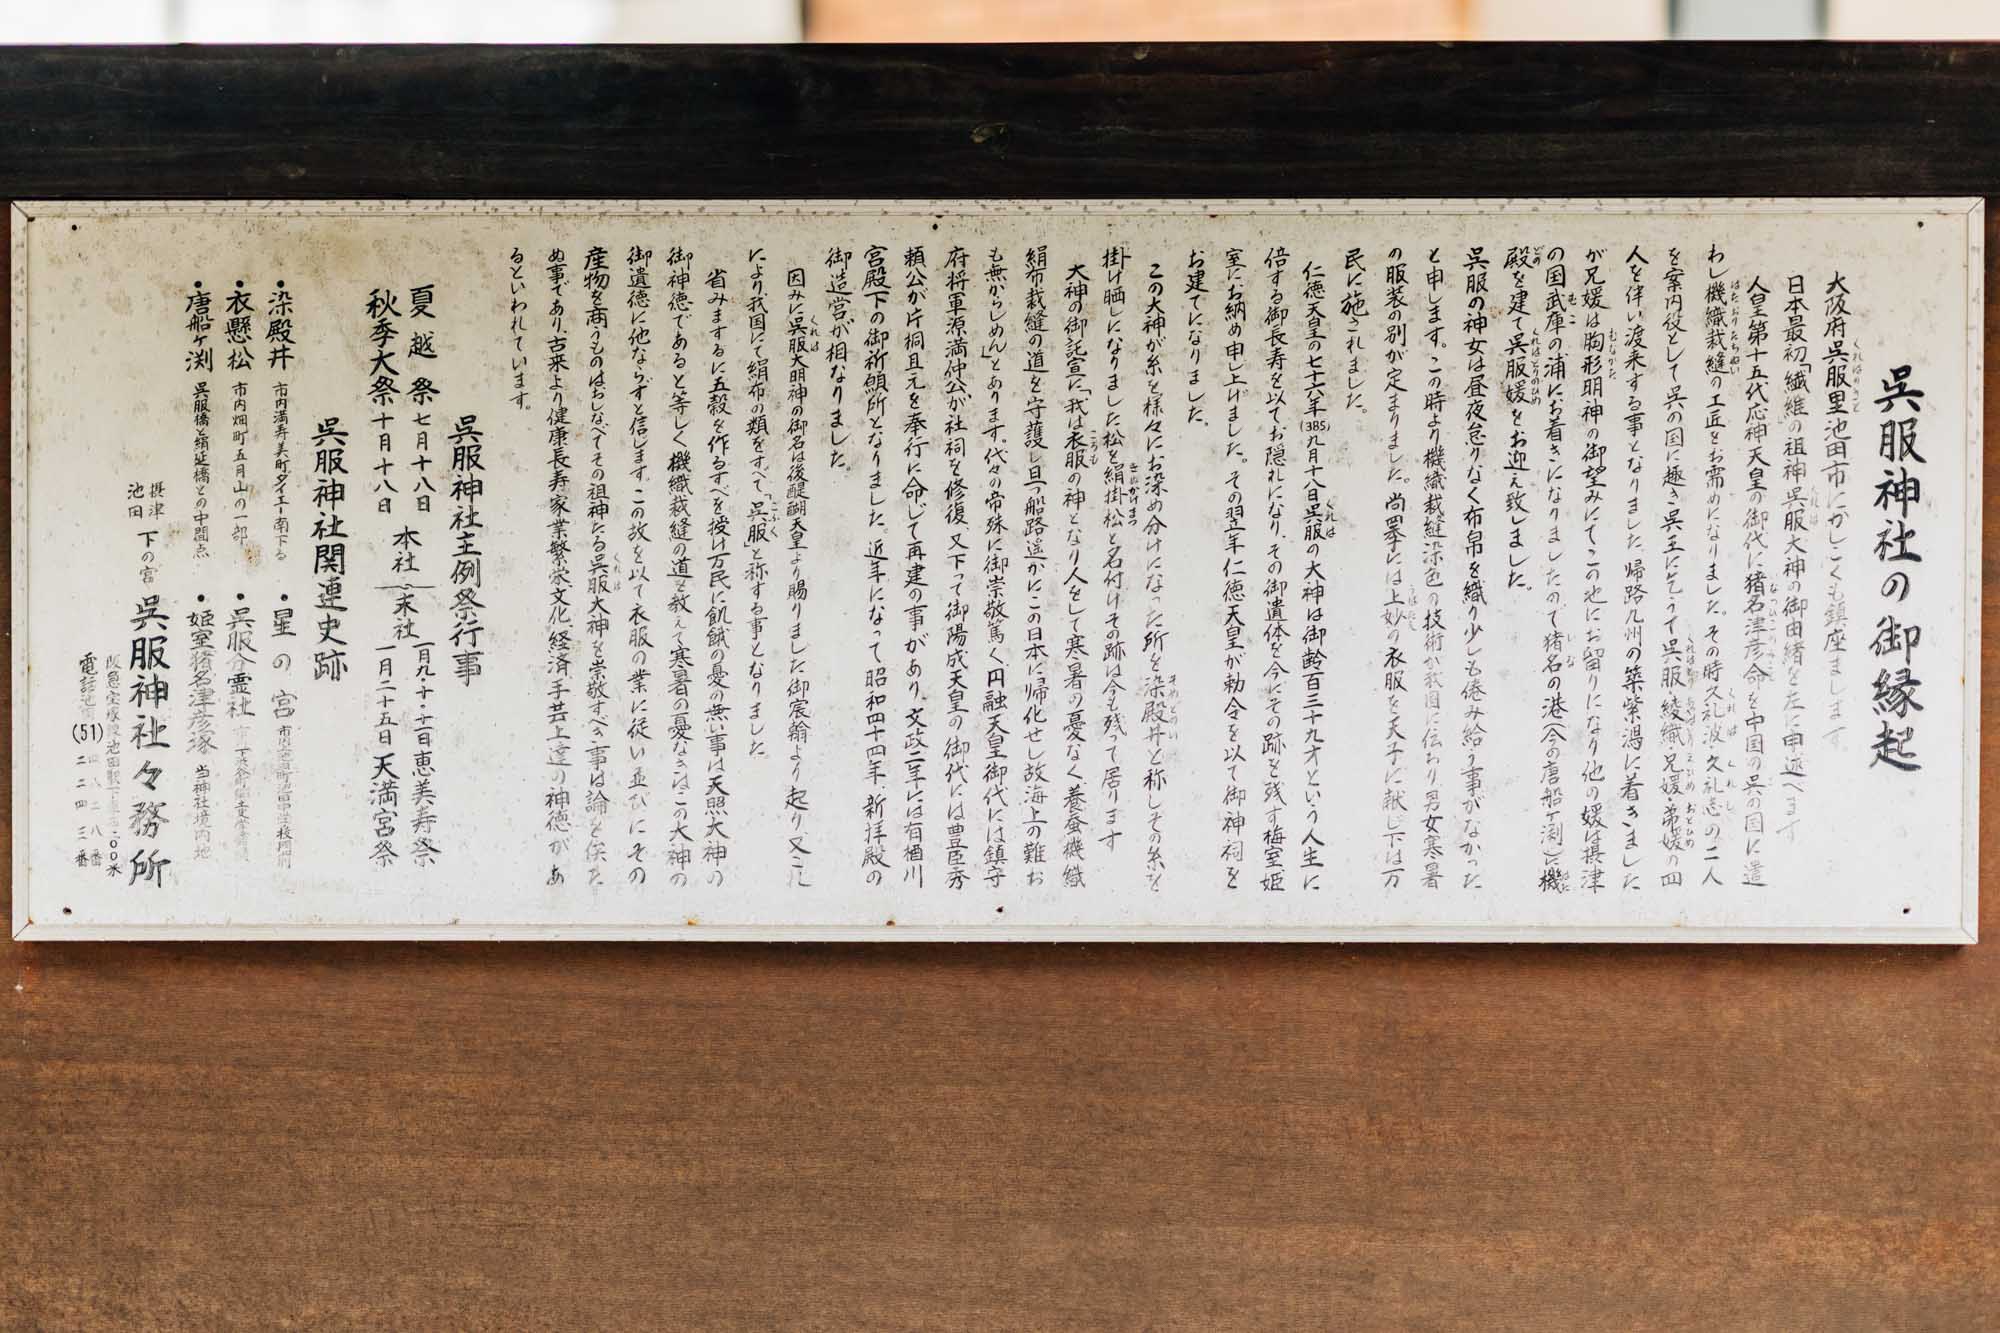 呉服神社の御縁起
大阪府呉服里池田市にかしこくも鎮座まします
日本最初「繊維の祖神呉服大神の御由緒を左に申述べます
人皇第十五代応神天皇の御代に猪名津彦命を中国の呉の国に遣
わし機織裁縫の工匠をお需めになりました。その時久礼波・久礼志の二人
を案内役として呉の国に趣き呉王に乞うて呉服・綾織・兄媛・弟媛の四
人を伴い渡来する事となりました、帰路九州の築紫潟に着きました
が兄媛は胸形明神の御望みにてこの地にお留りになり他の媛は摂津
の国武庫の浦にお着きになりましたので猪名の港(今の唐船ヶ渕)に機
殿を建て呉服媛をお迎え致しました。
呉服の神女は昼夜怠りなく布帛を織り少しも倦み給う事がなかった
と申します。この時より機織裁縫染色の技術が我国に伝わり男女寒暑
の服装の別が定まりました。尚畧には上妙の衣服を天子に献じ下は万
民に施されました。
仁徳天皇の七十六年(385)九月十八日呉服の大神は御齢百三十九才という人生に
倍する御長寿を以てお隠れになり、その御遺体を今にその跡を残す梅室姫
室にお納め申し上げました。その翌年仁徳天皇が勅令を以て御神祠を
お建てになりました。
この大神が糸を様々にお染め分けになった所を染殿井と称しその糸を
掛け晒しになりました松を絹掛松と名付けその跡は今も残って居ります
大神の御託宣に「我は衣服の神となり人をして寒暑の憂なく養蚕機織
絹布裁縫の道を守護し旦つ船路遥かにこの日本に帰化せし故海上の難お
も無からしめん」とあります。代々の帝殊に御崇敬篤く円融天皇御代には鎮守
府将軍源満仲公が社祠を修復、又下って御陽成天皇の御代には豊臣秀
頼公が片桐且元を奉行に命じて再建の事があり、文政二年には有栖川
宮殿下の御祈願所となりました。近年になって昭和四十四年、新拝殿の
御造営が相なりました。
因みに呉服大明神の御名は後醍醐天皇より賜りました御宸翰より起り又これ
により我国にて絹布の類をすべて「呉服」と称する事となりました
省みまするに五穀を作るすべを授け万民に飢餓の憂の無い事は天照大神の
御神徳であると等しく機織裁縫の道を教えて寒暑の憂なきはこの大神の
御遺徳に他ならずと信じます。この故を以て衣服の業に従い並びにその
産物を商うものはおしなべてその祖神たる呉服大神を崇敬すべき事は論を俟た
ぬ事であり、古来より健康長寿家業繁栄文化経済手芸上達の神徳があ
るといわれています。
呉服神社主例祭行事
夏越祭 七月十八日 本社 一月九・十・十一日恵美寿祭
秋季大祭 十月十八日 末社 一月二十五日天満宮祭
呉服神社関連史跡
・染殿井 市内満寿美町ダイエー南下る ・星の宮
・衣懸松 市内畑町五月山の一部 ・呉服分霊社
・唐船ヶ渕 呉服橋と絹延橋との中間点 ・姫室猪名津彦塚 当神社境内地
摂津池田 下の宮 呉服神社々務所
阪急宝塚線池田駅下車
電話池田(51)二二四三番